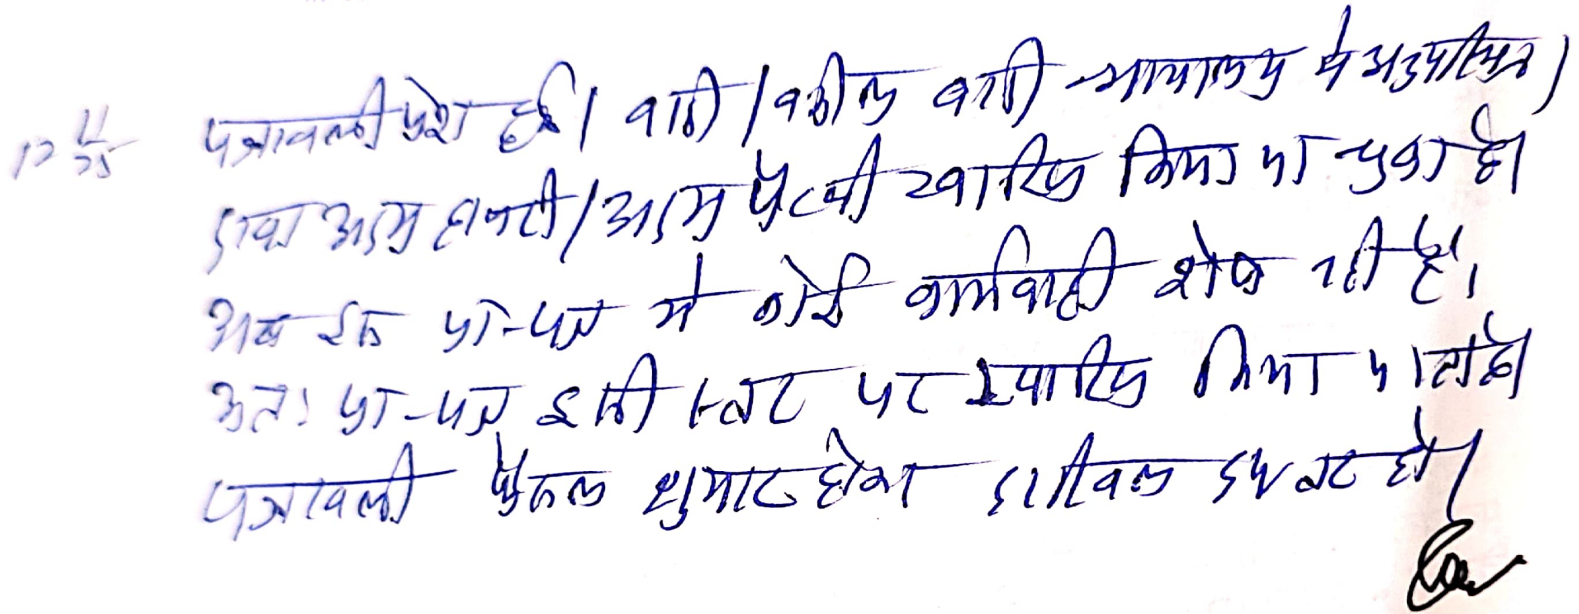 12/11/25 पत्रावली पेश हुई। वादी/वकील वादी न्यायालय मे अनुपस्थित।
दावा अदम हाजरी/अदम पैरवी खारिज किया जा चुका है।
अब इस प्रा-पत्र मे कोई कार्यवाही शेष नही है।
अतः प्रा-पत्र इसी स्तर पर खारिज किया जाता है।
पत्रावली फैसल शुमार होकर दाखिल दफ्तर हो।